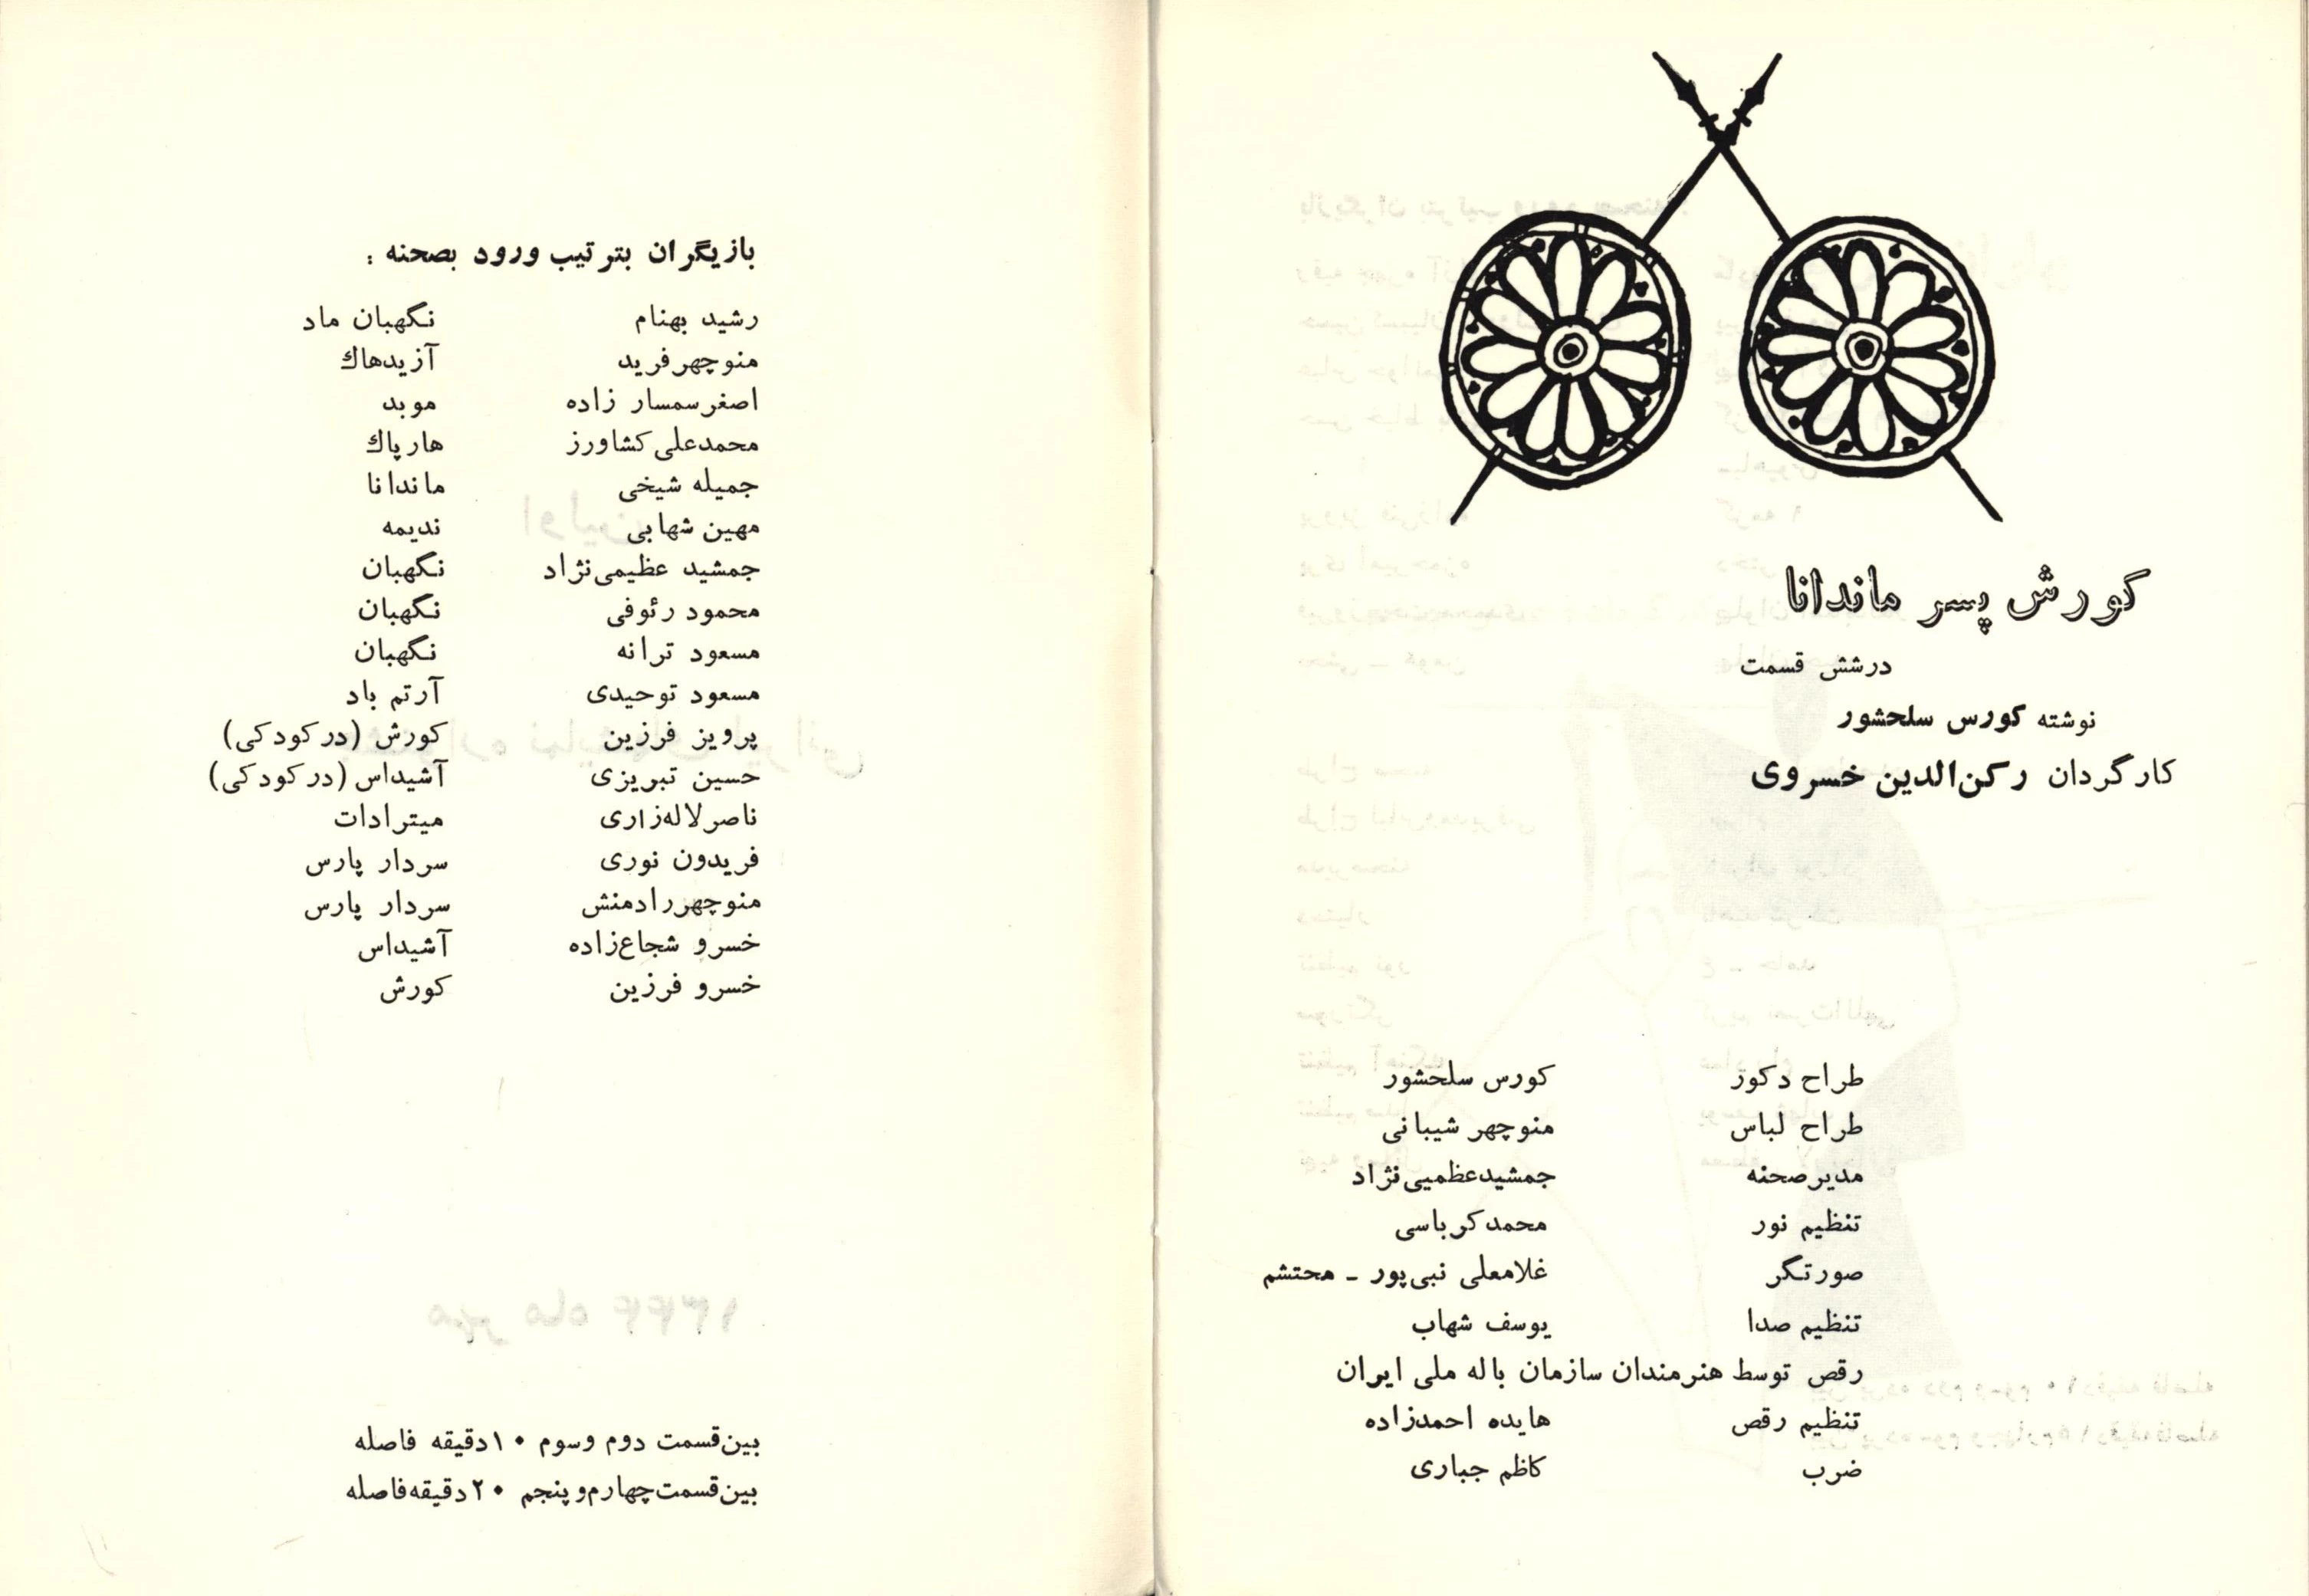 کورش پسر ماندانا
درشش قسمت
نوشته کورس سلحشور
کارگردان رکن‌الدین خسروی
طراح دکور کورس سلحشور
طراح لباس منوچهر شیبانی
مدیرصحنه جمشیدعظمیی‌نژاد
تنظیم نور محمدکرباسی
صورتگر غلامعلی نبی‌پور ـ محتشم
تنظیم صدا یوسف شهاب
رقص توسط هنرمندان سازمان باله ملی ایران
تنظیم رقص هایده احمدزاده
ضرب کاظم جباری
بازیگران بترتیب ورود بصحنه :
رشید بهنام نگهبان ماد
منوچهرفرید آزیدهاك
اصغرسمسار زاده موبد
محمدعلی کشاورز هارپاك
جمیله شیخی ماندانا
مهین شهابی ندیمه
جمشید عظیمی‌نژاد نگهبان
محمود رئوفی نگهبان
مسعود ترانه نگهبان
مسعود توحیدی آرتم باد
پرویز فرزین کورش (درکودکی)
حسین تبریزی آشیداس (درکودکی)
ناصرلاله‌زاری میترادات
فریدون نوری سردار پارس
منوچهررادمنش سردار پارس
خسرو شجاع‌زاده آشیداس
خسرو فرزین کورش
بین‌قسمت دوم وسوم ۱۰دقیقه فاصله
بین‌قسمت‌چهارم‌وپنجم ۲۰دقیقه‌فاصله